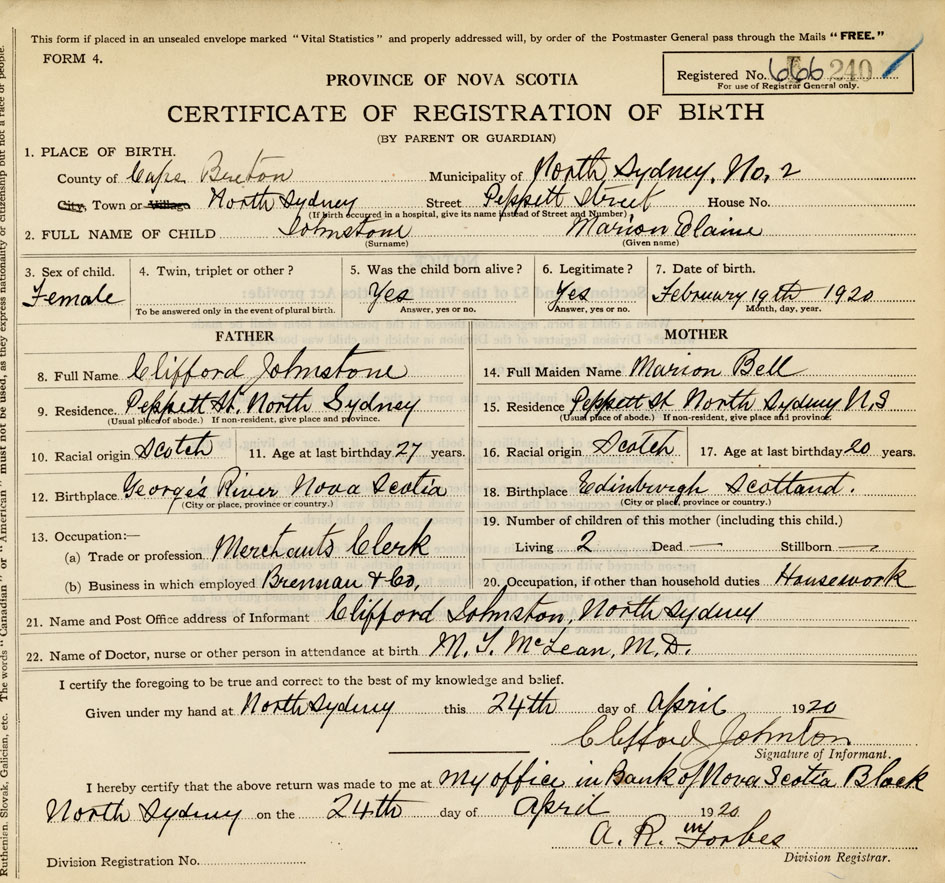 This form if placed in an unsealed envelope marked "Vital Statistics" and properly addressed will, by order of the Postmaster General pass through the Mails "FREE."
FORM 4.
Registered No. 666 240
For use of Registrar General only.
PROVINCE OF NOVA SCOTIA
CERTIFICATE OF REGISTRATION OF BIRTH
(BY PARENT OR GUARDIAN)
1. PLACE OF BIRTH.
County of Cape Breton Municipality of North Sydney, No. 2
City, Town or Village North Sydney Street Peppett Street House No.
(If birth occurred in a hospital, give its name instead of Street and Number)
2. FULL NAME OF CHILD Johnstone Marion Elaine
(Surname) (Given name)
3. Sex of child. 4. Twin, triplet or other? 5. Was the child born alive? 6. Legitimate? 7. Date of birth.
Female Yes Yes February 19th 1920
To be answered only in the event of plural birth. Answer, yes or no. Answer, yes or no. Month, day, year.
FATHER MOTHER
8. Full Name Clifford Johnstone 14. Full Maiden Name Marion Bell
9. Residence. Peppett St. North Sydney 15. Residence Peppett St North Sydney N.S
(Usual place of abode.) If non-resident, give place and province. (Usual place of abode.) If non-resident, give place and province.
10. Racial origin Scotch 11. Age at last birthday 27 years. 16. Racial origin Scotch 17. Age at last birthday 20 years.
12. Birthplace George's River Nova Scotia 18. Birthplace Edinburgh Scotland.
(City or place, province or country.) (City or place, province or country.)
13. Occupation:— 19. Number of children of this mother (including this child.)
(a) Trade or profession Merchants Clerk Living 2 Dead — Stillborn —
(b) Business in which employed Brennan & Co, 20. Occupation, if other than household duties Housework
21. Name and Post Office address of Informant Clifford Johnston, North Sydney
22. Name of Doctor, nurse or other person in attendance at birth M. T. McLean, M.D.
I certify the foregoing to be true and correct to the best of my knowledge and belief.
Given under my hand at North Sydney this 24th day of April 1920
Clifford Johnton
Signature of Informant.
I hereby certify that the above return was made to me at my office in Bank of Nova Scotia Block
North Sydney on the 24th day of April 1920
A. R. Forbes
Division Registration No. Division Registrar.
Ruthenian, Slovak, Galician, etc. The words "Canadian" or "American" must not be used, as they express nationality or citizenship but not a race or people.